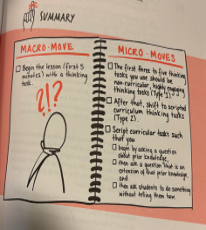 SUMMARY
MACRO-MOVE
□ Begin the lesson (first 5
minutes) with a thinking
task.
?!?
MICRO-MOVES
□ The first three to five thinking
tasks you use should be
non-curricular, highly engaging
thinking tasks (Type 1).
□ After that, shift to scripted
curriculum thinking tasks
(Type 2).
□ Script curricular tasks such
that you
□ begin by asking a question
about prior knowledge,
□ then ask a question that is an
extension of that prior knowledge,
and
□ then ask students to do something
without telling them how.